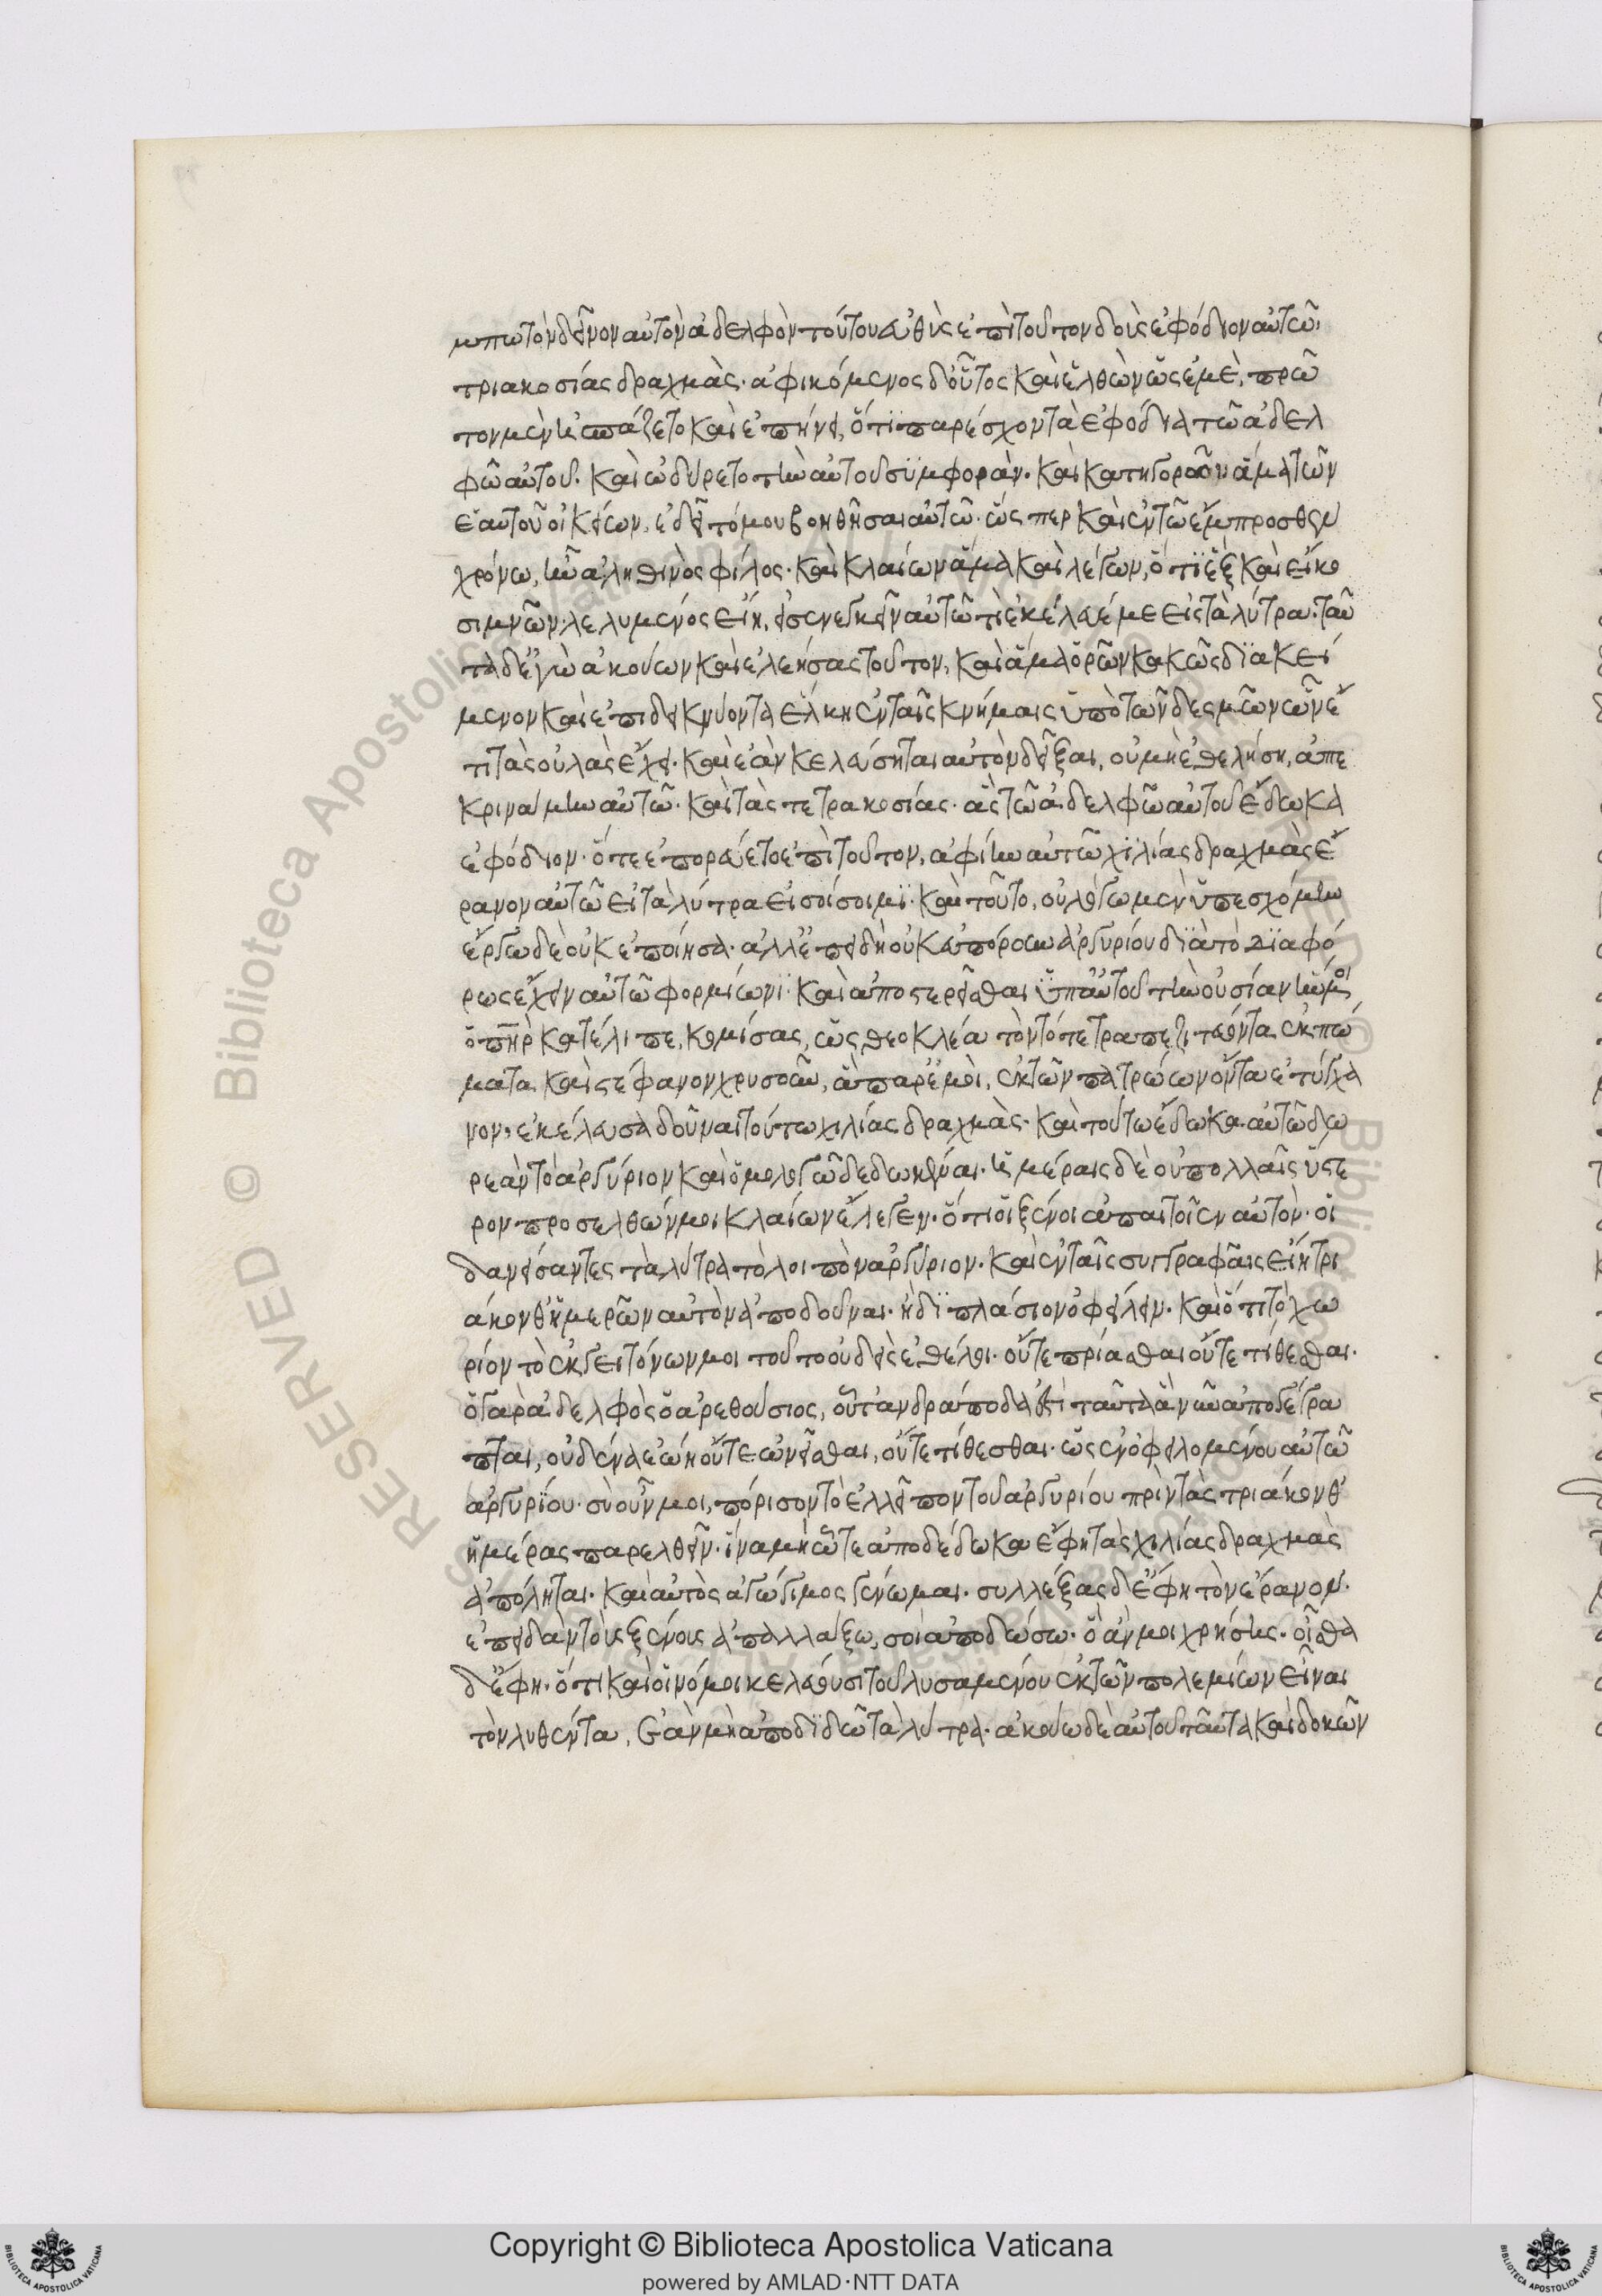 μπω τὸν δεῖνον αὐτὸν ἀδελφὸν τούτου εὐθὺς ἐπὶ τοῦτον δοὺς ἐφόδιον αὐτῶ,
τριακοσίας δραχμὰς· ἀφικόμενος δ' οὗτος καὶ ἐλθὼν ὡς ἐμὲ, πρῶ
τον μὲν ἠσπάζετο καὶ ἐπήνει, ὅτι παρέσχον τὰ ἐφόδια τῶ ἀδελ
φῶ αὐτοῦ. καὶ ὠδύρετο τὴν αὑτοῦ συμφορὰν. καὶ κατηγορῶν ἅμα τῶν
ἑαυτοῦ οἰκείων, ἐδεῖτό μου βοηθῆσαι αὐτῶ· ὥς περ καὶ ἐν τῶ ἔμπροσθεν
χρόνω, ἦν ἀληθινὸς φίλος. καὶ κλαίων ἅμα καὶ λέγων, ὅτι ἓξ καὶ εἴκο
σι μνῶν λελυμένος εἴη, εἰσενεγκεῖν αὐτῶ τι ἐκέλευέ με εἰς τὰ λύτρα. ταῦ
τα δ' ἐγὼ ἀκούων καὶ ἐλεήσας τοῦτον, καὶ ἅμα ὁρῶν κακῶς διακεί
μενον καὶ ἐπιδεικνύοντα ἕλκη ἐν ταῖς κνήμαις ὑπὸ τῶν δεσμῶν ὧν ἔ
τι τὰς οὐλὰς ἔχει. καὶ ἐὰν κελεύσηται αὐτὸν δεῖξαι, οὐ μὴ ἐθελήση, ἀπε
κρινάμην αὐτῶ. καὶ τὰς τετρακοσίας· ἃς τῶ ἀδελφῶ αὐτοῦ ἔδωκα
ἐφόδιον· ὅτε ἐπορεύετο ἐπὶ τοῦτον, ἀφίην αὐτῶ χιλίας δραχμὰς ἔ
ρανον αὐτῶ εἰ τὰ λύτρα εἰσοίσοιμι. καὶ τοῦτο, οὐ λόγω μὲν ὑπεσχόμην
ἔργω δὲ οὐκ ἐποίησα· ἀλλ' ἐπειδὴ οὐκ εὐπόρουν ἀργυρίου διὰ τὸ διαφό
ρως ἔχειν αὐτῶ φορμίωνι· καὶ ἀποστερεῖσθαι ὑπ' αὐτοῦ τὴν οὐσίαν ἥν μοι
ὁ πηρ κατέλιπε, κομίσας, ὡς θεοκλέα τὸν τότε τραπεζιτεύοντα ἐκπώ
ματα καὶ στέφανον χρυσοῦν, ἃ παρ' ἐμοὶ, ἐκ τῶν πατρώων ὄντα ἐτύγχα
νον, ἐκέλευσα δοῦναι τούτω χιλίας δραχμὰς. καὶ τοῦτω ἔδωκα αὐτῶ δω
ρεὰν τὸ ἀργύριον καὶ ὁμολογῶ δεδωκέναι. ἡμέραις δὲ οὐ πολλαῖς ὕστε
ρον προσελθών μοι κλαίων ἔλεγεν· ὅτι οἱ ξένοι ἀπαιτοῖεν αὐτὸν· οἱ
δανείσαντες τὰ λύτρα τὸ λοιπὸν ἀργύριον. καὶ ἐν ταῖς συγγραφαῖς εἴη τρι
άκονθ' ἡμερῶν αὐτὸν ἀποδοῦναι. ἢ διπλάσιον ὀφείλειν. καὶ ὅτι τὸ χω
ρίον τὸ ἐκ γειτόνων μοι τοῦτο οὐδεὶς ἐθέλοι· οὔτε πρίασθαι οὔτε τίθεσθαι.
ὁ γὰρ ἀδελφὸς ὁ ἀρεθούσιος, οὗ τἀνδράποδα ἐστὶ ταῦτα ἃ νῦν ἀπογέγρα
πται, οὐδένα ἐώη οὔτε ὠνεῖσθαι, οὔτε τίθεσθαι· ὡς ἐνοφειλομένου αὐτῶ
ἀργυρίου· σὺ οὖν μοι, πόρισον τὸ ἐλλεῖπον τοῦ ἀργυρίου πρὶν τὰς τριάκονθ'
ἡμέρας παρελθεῖν· ἵνα μὴ ὅ τε ἀποδέδωκα ἔφη τὰς χιλίας δραχμὰς
ἀπόληται. καὶ αὐτὸς ἀγώγιμος γένωμαι. συλλέξας δ' ἔφη τὸν ἔρανον·
ἐπειδὰν τοὺς ξένους ἀπαλλάξω, σοὶ ἀποδώσω· ὃ ἄν μοι χρήσης. οἶσθα
δ' ἔφη· ὅτι καὶ οἱ νόμοι κελεύουσι τοῦ λυσαμένου ἐκ τῶν πολεμίων εἶναι
τὸν λυθέντα, ἐὰν μὴ ἀποδιδῶ τὰ λύτρα. ἀκούω δὲ αὐτοῦ ταῦτα καὶ δοκῶν
Copyright © Biblioteca Apostolica Vaticana
powered by AMLAD·NTT DATA